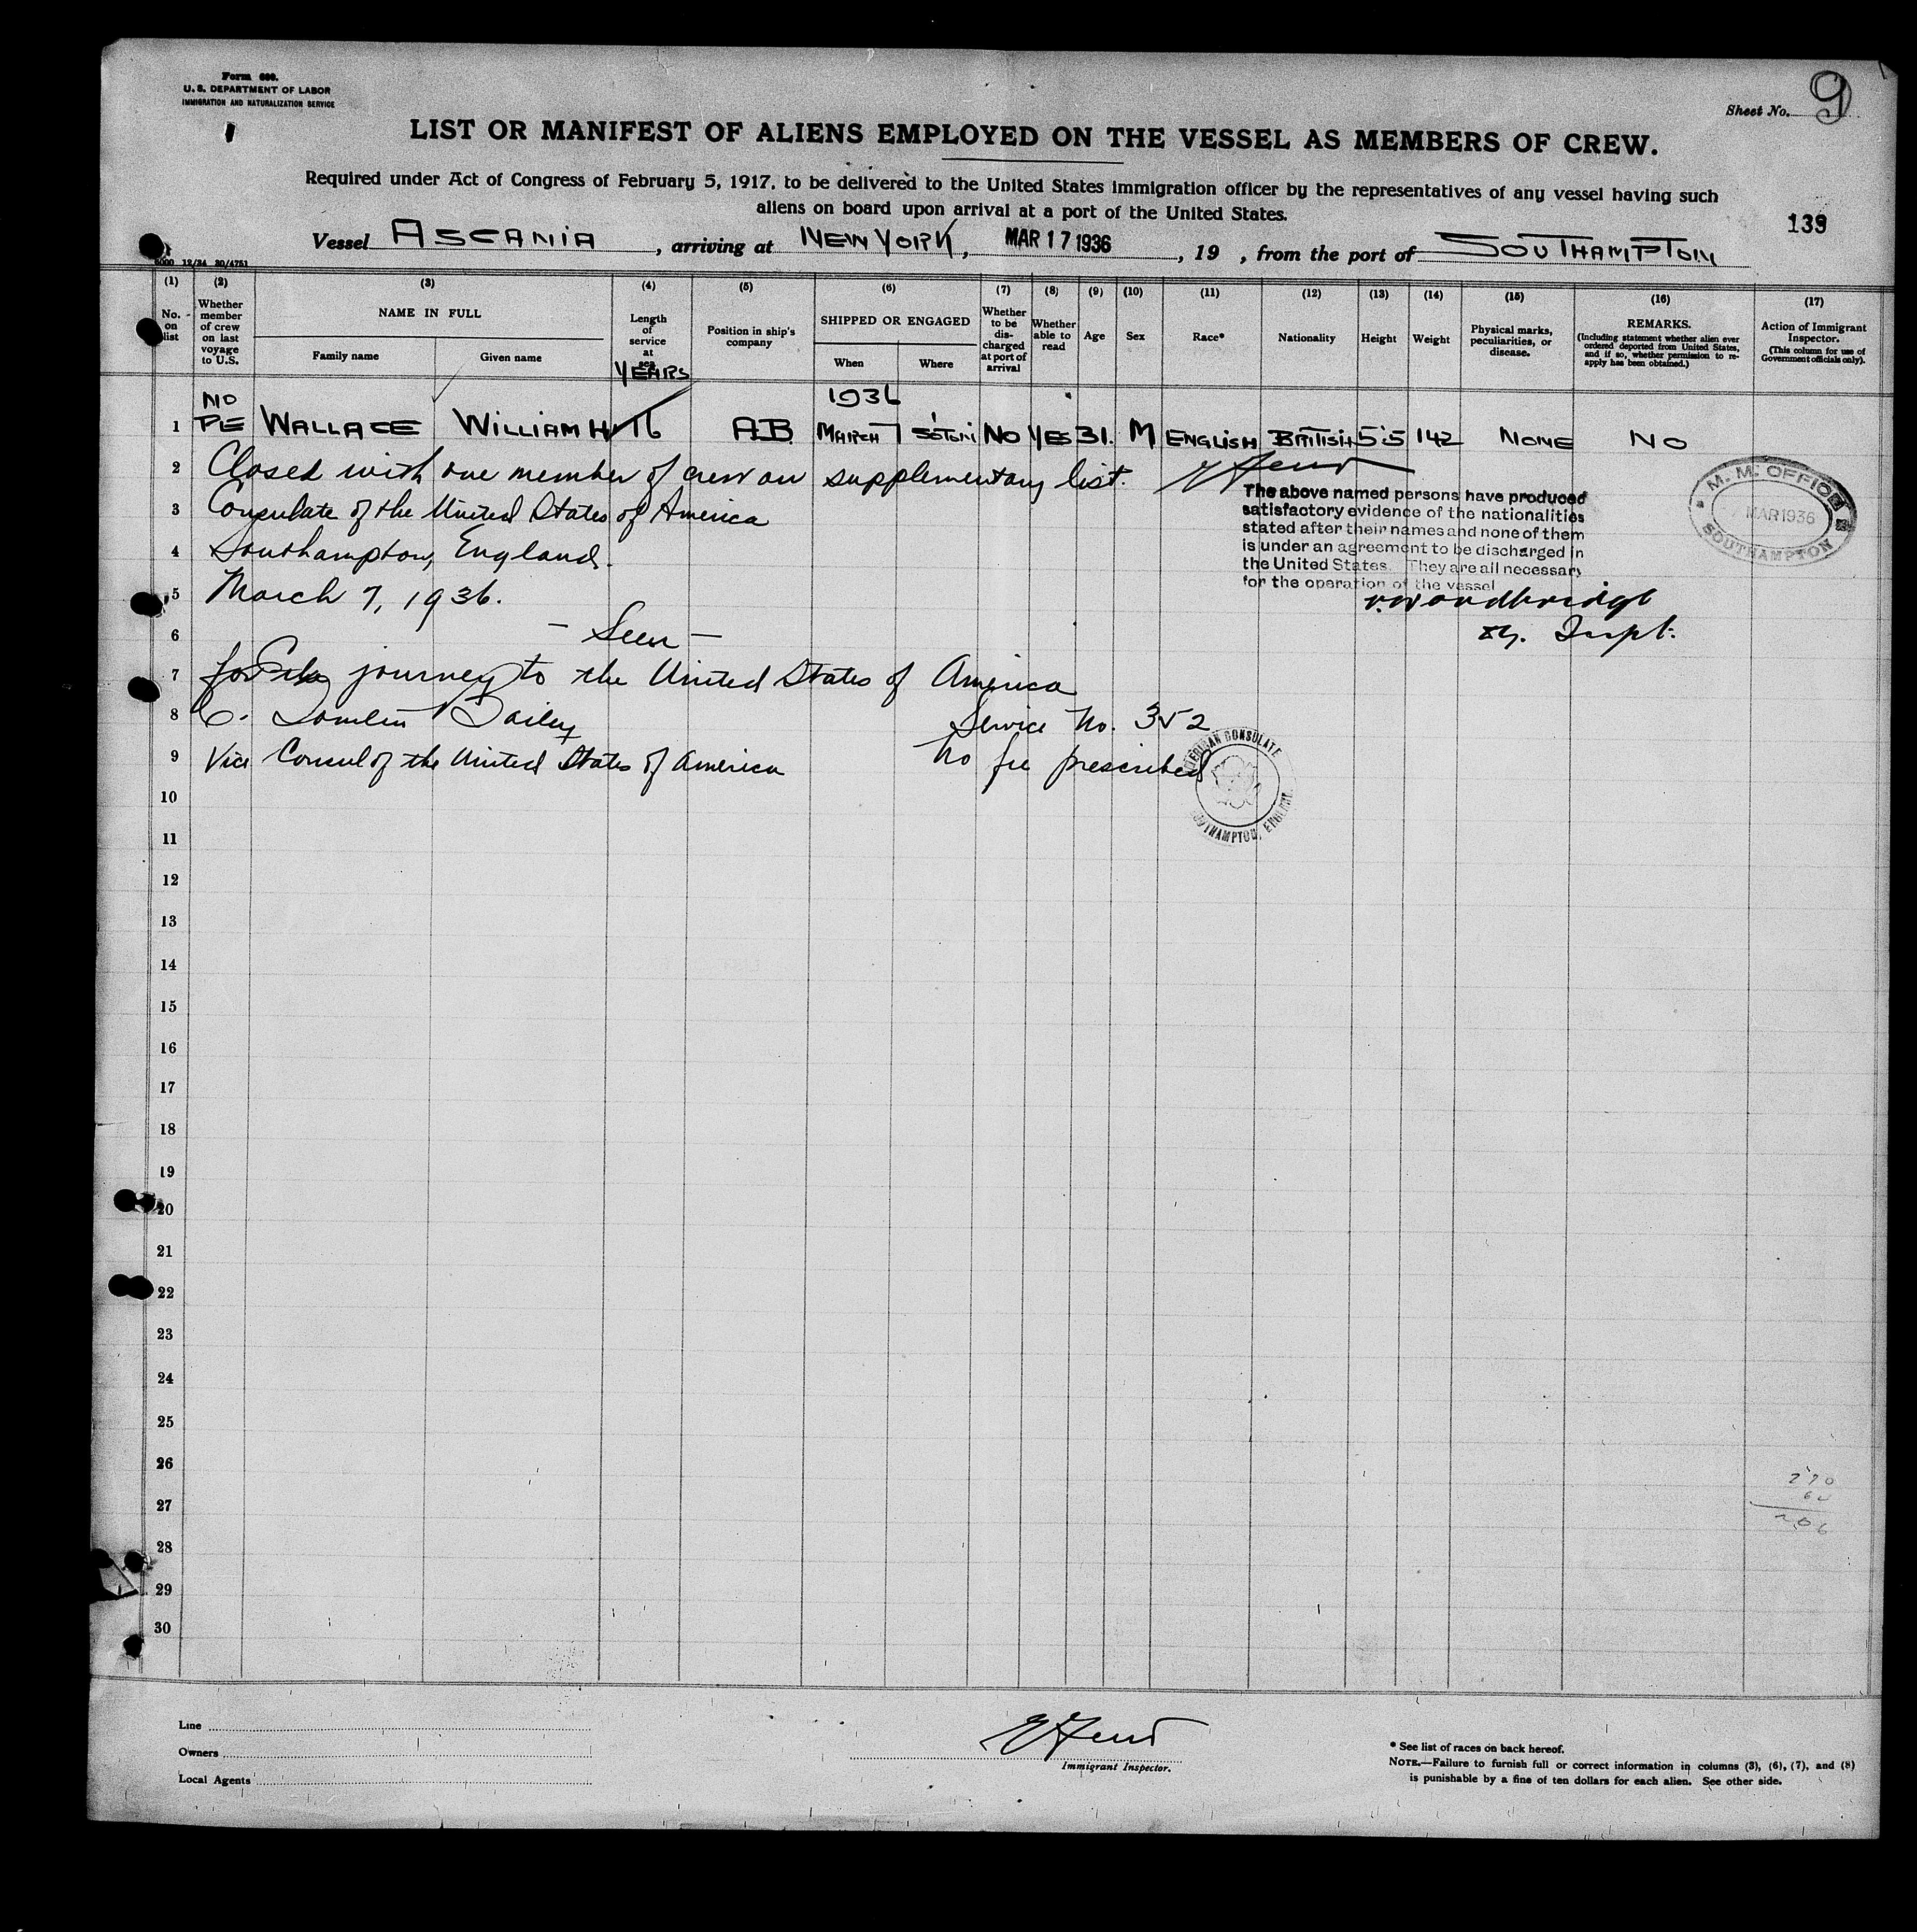 Form 680.
U. S. DEPARTMENT OF LABOR
IMMIGRATION AND NATURALIZATION SERVICE
Sheet No. 9
LIST OR MANIFEST OF ALIENS EMPLOYED ON THE VESSEL AS MEMBERS OF CREW.
Required under Act of Congress of February 5, 1917, to be delivered to the United States immigration officer by the representatives of any vessel having such
aliens on board upon arrival at a port of the United States.
139
Vessel ASCANIA, arriving at NEW YORK, MAR 17 1936, 19 , from the port of SOUTHAMPTON
6000 12/34 30/4751
(1) (2) (3) (4) (5) (6) (7) (8) (9) (10) (11) (12) (13) (14) (15) (16) (17)
No. on list
Whether member of crew on last voyage to U.S.
NAME IN FULL
Family name
Given name
Length of service at sea
YEARS
Position in ship's company
SHIPPED OR ENGAGED
When
Where
Whether to be discharged at port of arrival
Whether able to read
Age
Sex
Race*
Nationality
Height
Weight
Physical marks, peculiarities, or disease.
REMARKS.
(Including statement whether alien ever ordered deported from United States, and if so, whether permission to reapply has been obtained.)
Action of Immigrant Inspector.
(This column for use of Government officials only).
NO 1936
1 WALLACE WILLIAM H 16 A.B. MARCH 7 S'OTON NO YES 31. M ENGLISH BRITISH 5'5 142 NONE NO
2 Closed with one member of crew on supplementary list.
3 Consulate of the United States of America
4 Southampton, England.
5 March 7, 1936.
6 — Seen —
7 journey to the United States of America
8 Dailey Service No. 352
9 Vice Consul of the United States of America No fee prescribed
The above named persons have produced
satisfactory evidence of the nationalities
stated after their names and none of them
is under an agreement to be discharged in
the United States. They are all necessary
for the operation of the vessel
Woodbridge
M. M. OFFICE
MAR 1936
SOUTHAMPTON
AMERICAN CONSULATE
SOUTHAMPTON, ENGLAND
10
11
12
13
14
15
16
17
18
19
20
21
22
23
24
25
26
27
28
29
30
270
64
206
Line
Owners
Local Agents
Immigrant Inspector.
* See list of races on back hereof.
NOTE.—Failure to furnish full or correct information in columns (3), (6), (7), and (8)
is punishable by a fine of ten dollars for each alien. See other side.